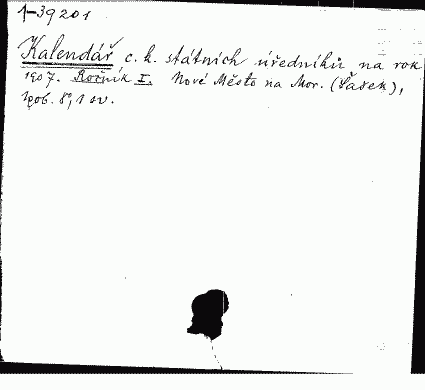 1-39201
Kalendář c. k. státních úředníků na rok
1907. Ročník I. Nové Město na Mor. (Šašek),
8°, 1 sv.